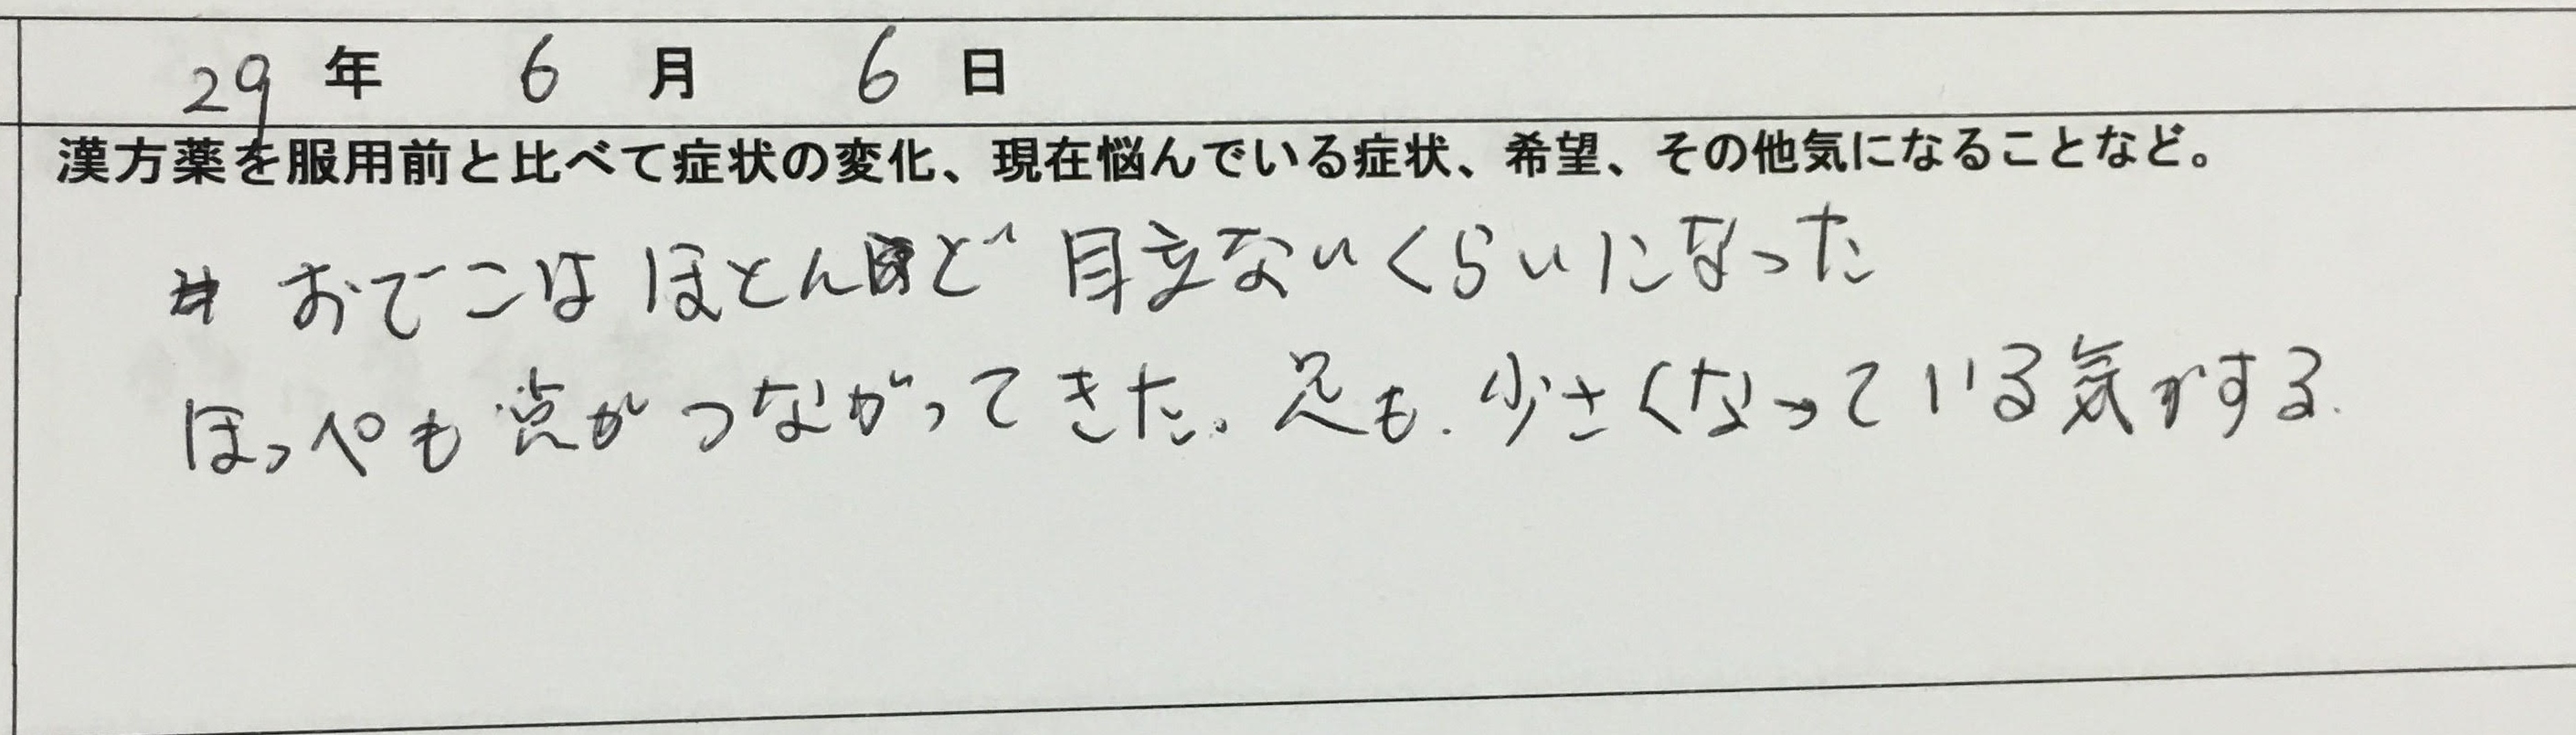 29年 6月 6日
漢方薬を服用前と比べて症状の変化、現在悩んでいる症状、希望、その他気になることなど。
おでこはほとんど目立ないくらいになった
ほっぺも点がつながってきた。足も.少さくなっている気がする.